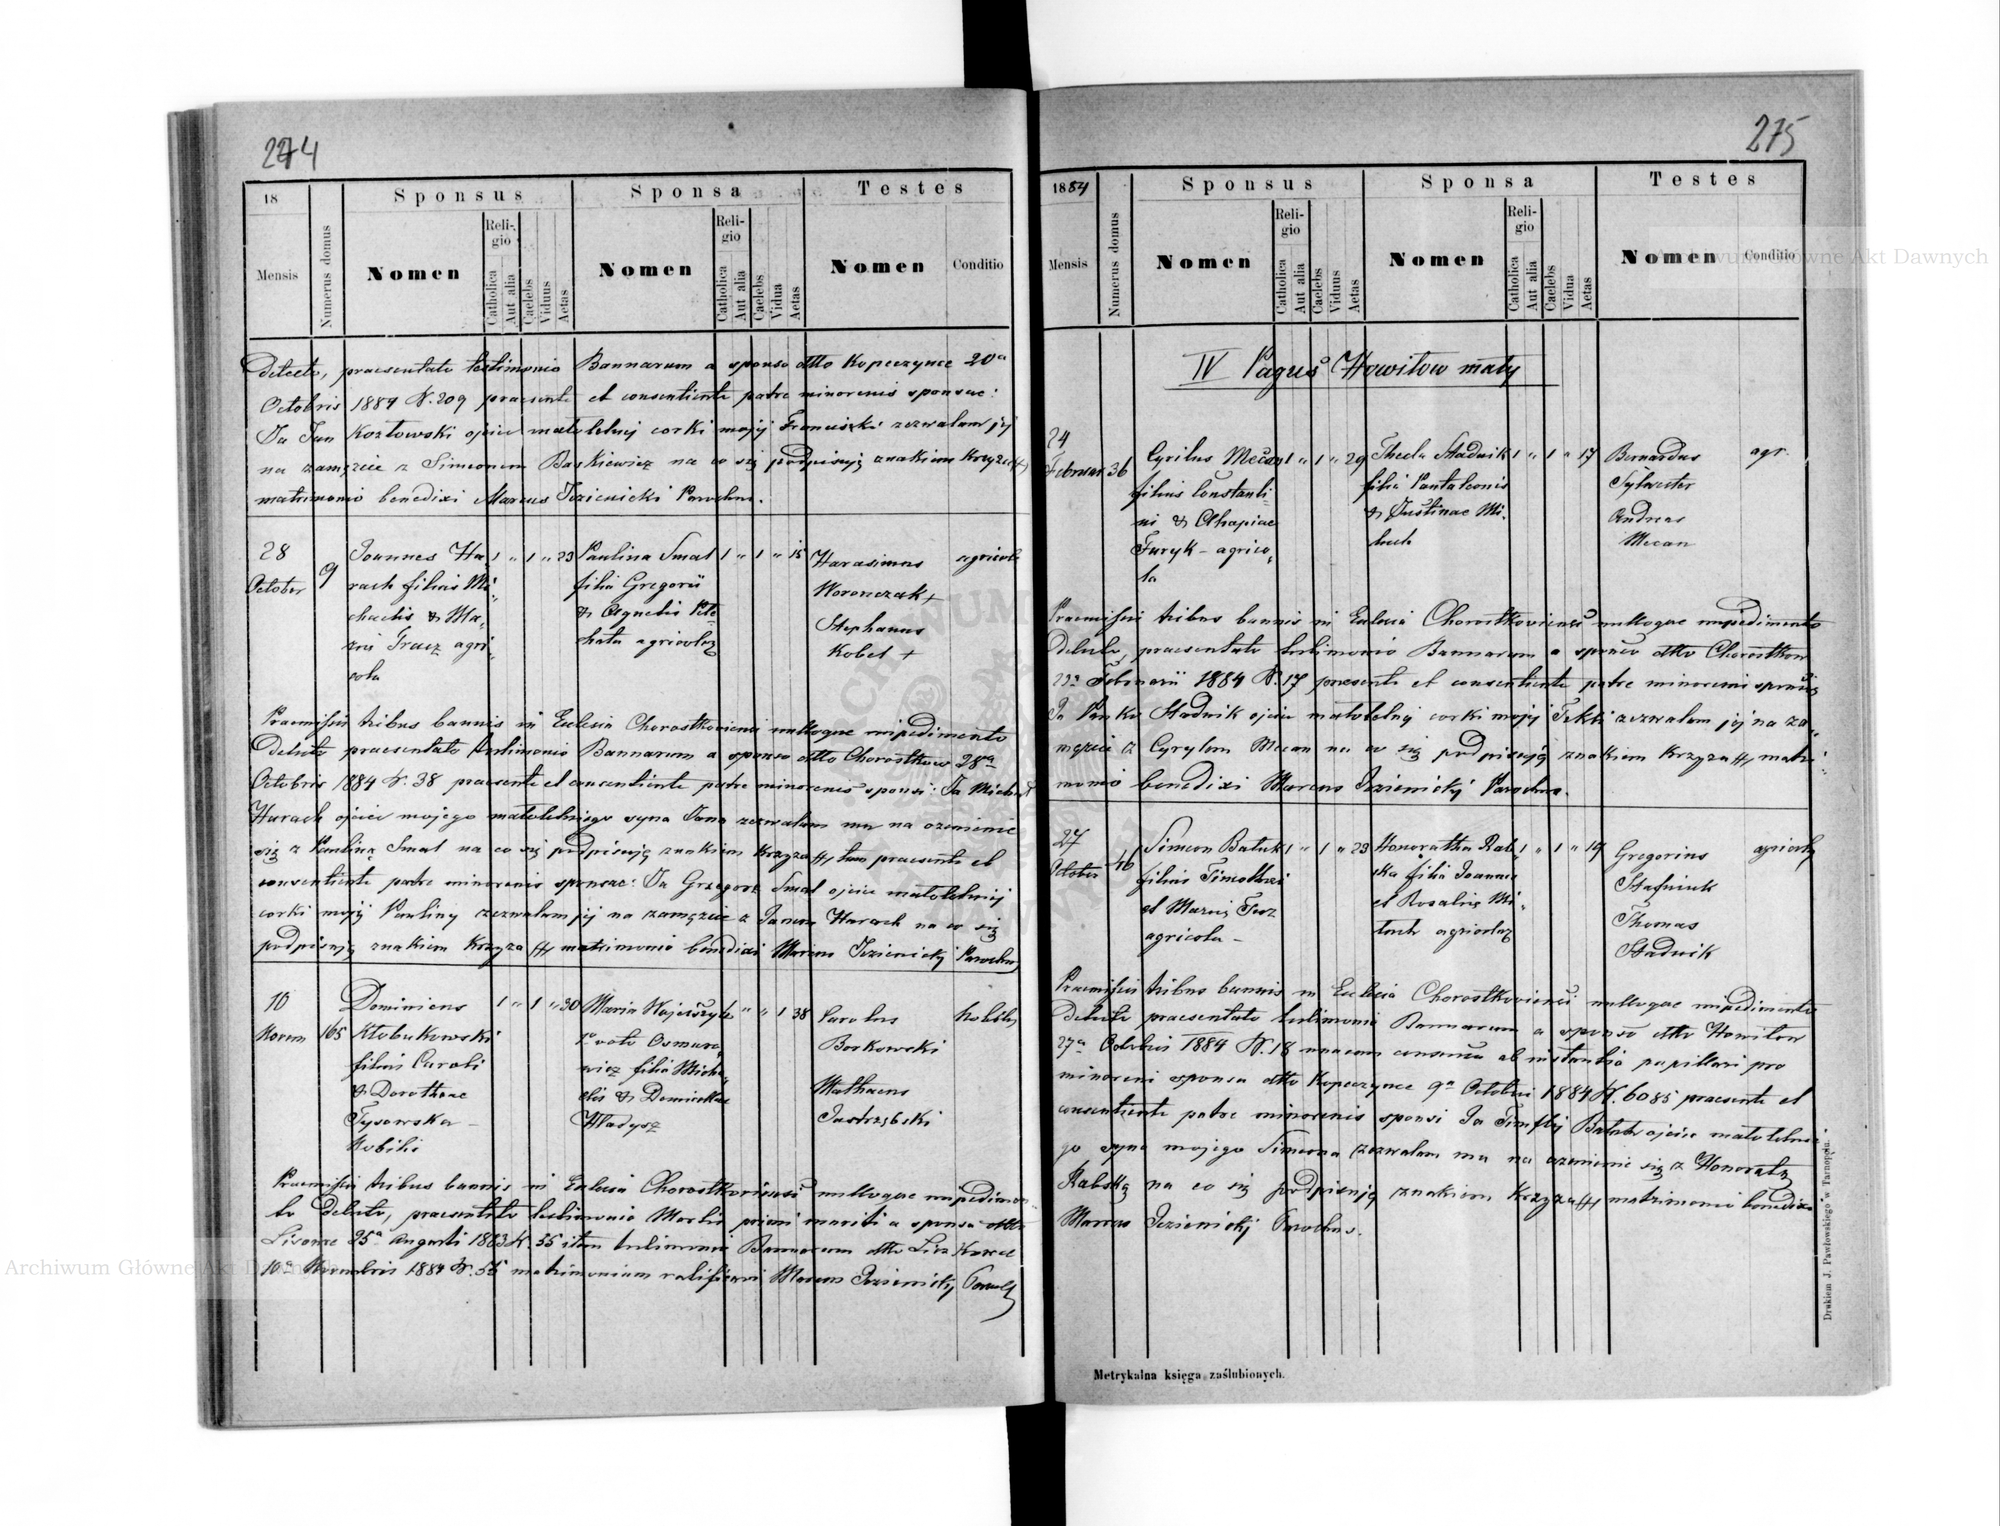 274
18
Mensis
Numerus domus
Sponsus
Nomen
Religio
Catholica
Aut alia
Caelebs
Viduus
Aetas
Sponsa
Nomen
Religio
Catholica
Aut alia
Caelebs
Vidua
Aetas
Testes
Nomen
Conditio
detecto, praesentato testimonio Bannorum a sponso dtto Kopeczynce 20a
Octobris 1884 N. 209 praesente et consentiente patre minorenis sponsae:
Ja Jan Kozłowski ojciec małoletniej corki mojej Franciszki zezwalam jej
na zamęzcie z Simeonem Baskiewicz na co się podpisuję znakiem krzyza
matrimonio benedixi Marcus Parochus.
28
October
9
Joannes Ha-
rach filius Mi-
chaelis & Ma-
Tracz agri-
cola
1 " 1 " 23
Paulina Smal
filia Gregorii
& Agnetis
agricolae
1 " 1 " 15
Harasimus
Woronczak +
Stephanus
Kobel +
agricol
Praemissis tribus bannis in Ecclesia Chorostkoviensi nulloque impedimento
detecto praesentato testimonio Bannorum a sponso dtto Chorostkow 28va
Octobris 1884 N. 38 praesente et consentiente patre minorenis sponsi: Ja Michał
Harach ojciec mojego małoletniego syna Jana zezwalam mu na ozenienie
się z Pauliną Smal na co się podpisuję znakiem krzyza tum praesente et
consentiente patre minorenis sponsae: Ja Grzegorz Smal ojciec małoletniej
corki mojej Pauliny zezwalam jej na zamęzcie z Janem Harach na co się
podpisuję znakiem krzyza matrimonio benedixi Marcus Parochus
10
Novem
165
Dominicus
Kłobukowski
filius Caroli
& Dorotheae
Tysowska -
Nobilis
1 " 1 " 30
Maria
1o voto
filia Micha-
elis &
Władysz
" " 1 38
Carolus
Borkowski
Mathaeus
Jastrzębski
Nobiles
Praemissis tribus bannis in Ecclesia Chorostkoviensi nulloque impedimen-
to detecto, praesentato testimonio Mortis primi mariti a sponsa dtto
25a Augusti 1883 N. 55 item testimonio Bannorum dtto
10a Novembris 1884 N. 55 matrimonium Marcus
275
1884
Mensis
Numerus domus
Sponsus
Nomen
Religio
Catholica
Aut alia
Caelebs
Viduus
Aetas
Sponsa
Nomen
Religio
Catholica
Aut alia
Caelebs
Vidua
Aetas
Testes
Nomen
Conditio
IV Pagus Howilow mały
24
Februar
36
Cyrilus Mecan
filius Constanti-
ni & Ahapiae
Furyk - agrico-
la
1 " 1 " 29
Thecla Stadnik
filia Pantaleonis
& Justinae Mi-
1 " 1 " 17
Bernardus
Sylwester
Andreas
Mecan
agr.
Praemissis tribus bannis in Ecclesia Chorostkoviensi nulloque impedimento
detecto, praesentato testimonio Bannorum a sponso dtto Chorostkow
Februarii 1884 N. 17 praesente et consentiente patre minorenis sponsae
Ja Stadnik ojciec małoletniej corki mojej Tekli zezwalam jej na za-
męzcie z Cyrylem Mecan na co się podpisuję znakiem krzyza matri-
monio benedixi Marcus Parochus.
27
October
46
Simeon Batuk
filius Timothei
et Mariae
agricola -
1 " 1 " 23
Honoratha Rab-
ska filia Joannis
et Rosaliae Mi-
agricolae
1 " 1 " 19
Gregorius
Thomas
Stadnik
agricolae
Praemissis tribus bannis in Ecclesia Chorostkoviensi nulloque impedimento
detecto praesentato testimonio Bannorum a sponso dtto Howilow
27a Octobris 1884 N. 18 ab instantia pupillari pro
minoreni sponsa dtto Kopeczynce 9a Octobris 1884 N. 6085 praesente et
consentiente patre minorenis sponsi Ja ojciec małoletnie-
go syna mojego Simeona zezwalam mu na ozenienie się z Honoratą
Rabską na co się podpisuję znakiem krzyza matrimonio benedixi
Marcus Parochus.
Metrykalna księga zaślubionych.
Drukiem J. Pawłowskiego w Tarnopolu.
Archiwum Główne Akt Dawnych
Archiwum Główne Akt Dawnych